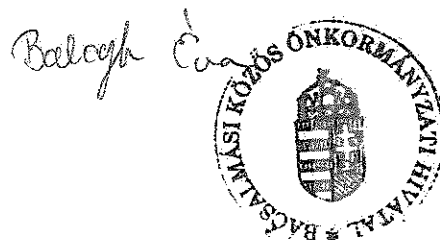 Balogh Éva
BÁCSALMÁSI KÖZÖS ÖNKORMÁNYZATI HIVATAL *